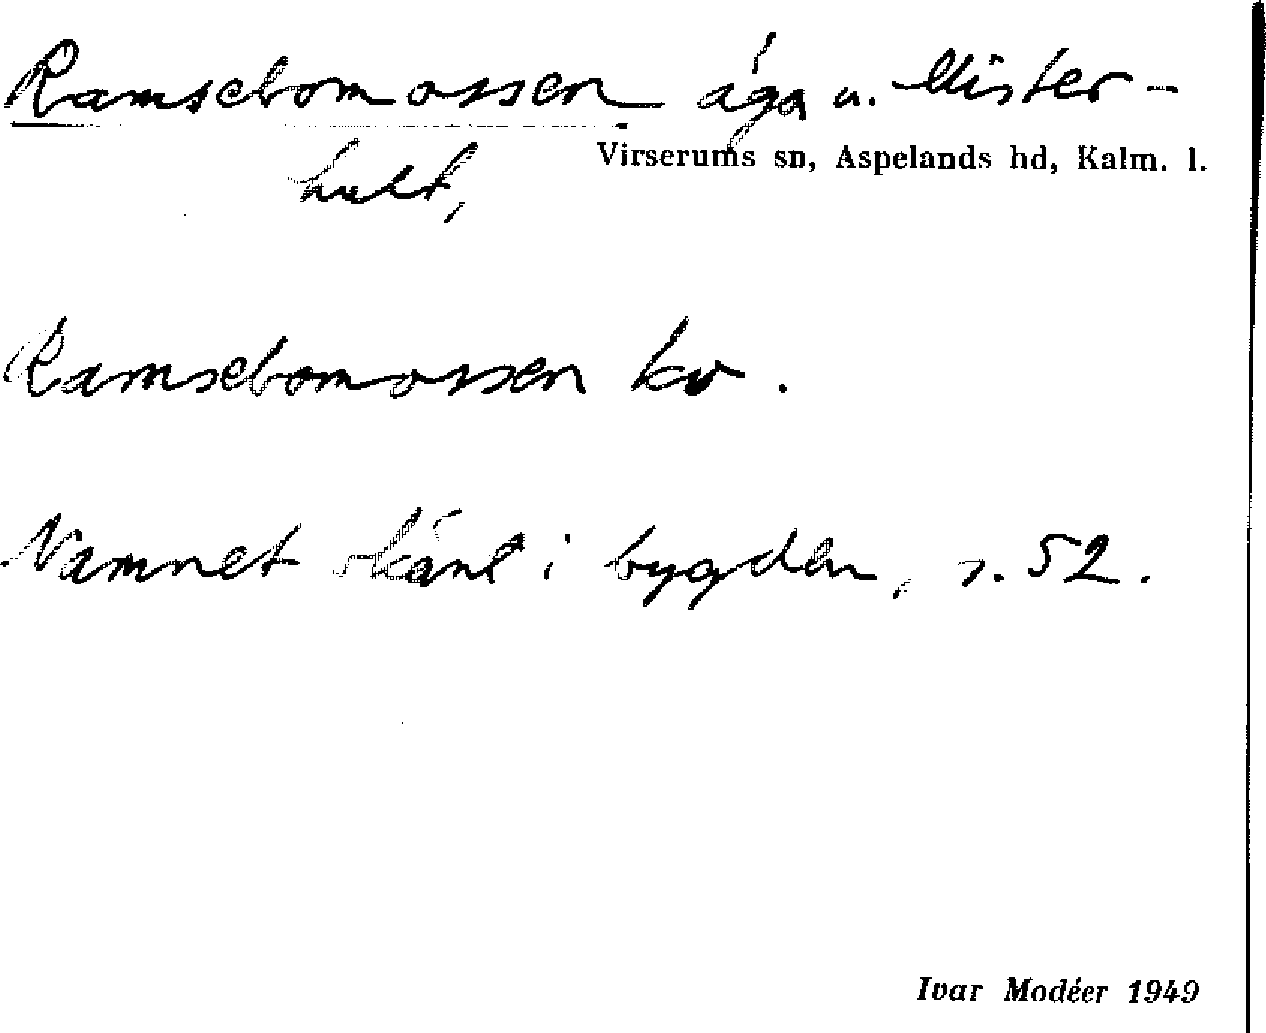 Ramsebomossen äga u. Mister-
hult,
Virserums sn, Aspelands hd, Kalm. l.
Ramsebomossen kv.
Namnet okänt i bygden, s. 52.
Ivar Modéer 1949